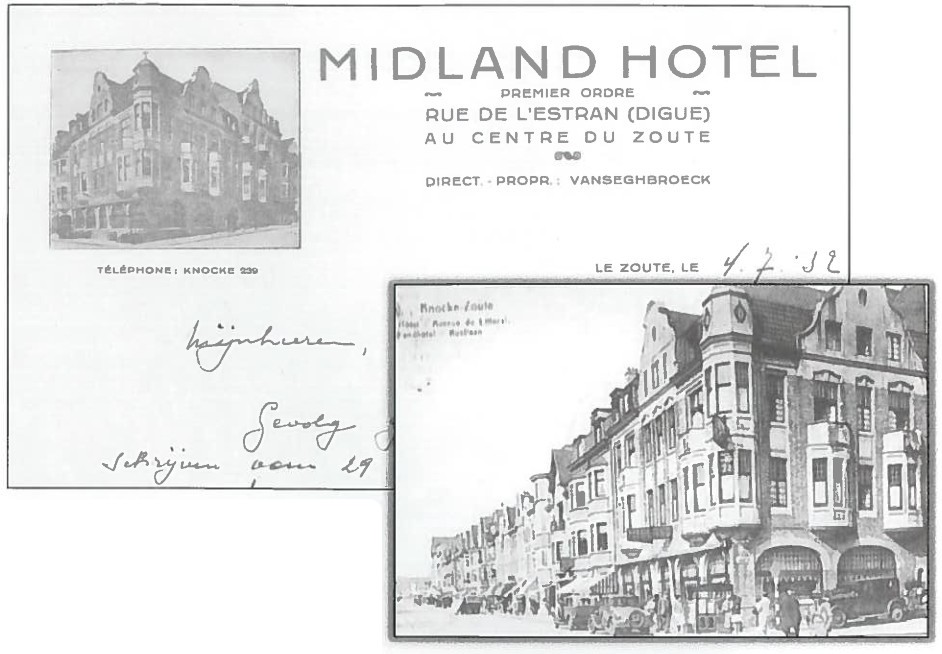 MIDLAND HOTEL
PREMIER ORDRE
RUE DE L'ESTRAN (DIGUE)
AU CENTRE DU ZOUTE
DIRECT. - PROPR.: VANSEGHBROECK
TÉLÉPHONE: KNOCKE 239
LE ZOUTE, LE 4.7.'32
Mijnheeren,
Gevolg
schrijven van 29
Knocke Zoute
Avenue du Littoral